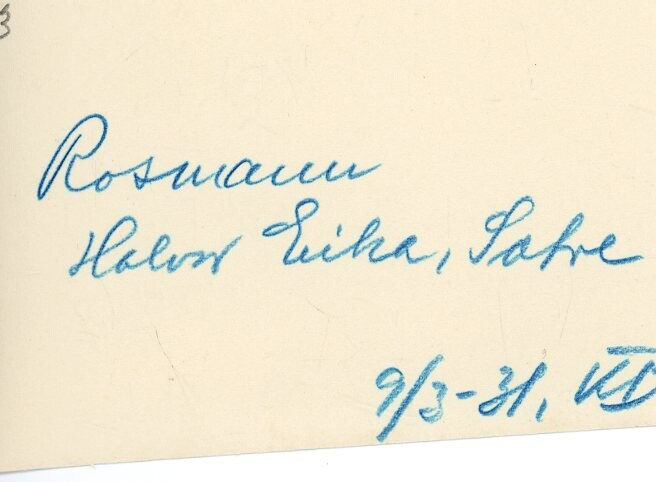 3
Rosmann
Halvor Eika, Sætre
9/3-31, VII